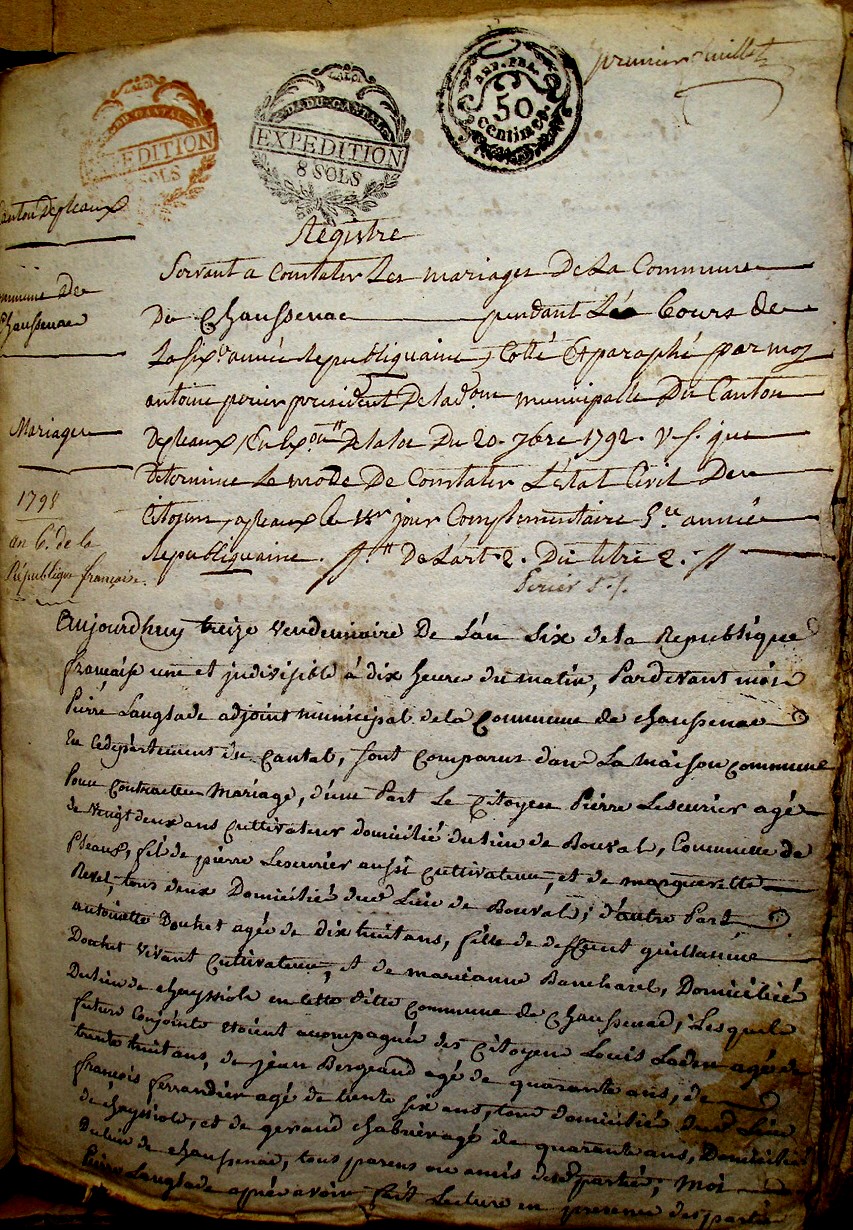 premier feuillet
LA LOI
DU CANTAL
EXPEDITION
8 SOLS
LA LOI
D. DU CANTAL
EXPEDITION
8 SOLS
REP. FRA.
50
Centimes.
Canton de pleaux
commune de
chaussenac
Mariages
1798
an 6. de la
République française.
Registre
Servant a Constater Les mariages De La Commune
De Chaussenac pendant Le Cours de
La six.e année Republiquaine, Cotté Et paraphé par moy
antoine perier president De lad.on municipalle Du Canton
De pleaux, En Ex.on De la loi Du 20. 7bre 1792. v. s. que
Determine Le mode De Constater L'Etat Civil Des
Citoyens, a pleaux le 1er jour Complementaire 5.ee année
Republiquaine. De L'art. 2. Du titre 2.
Perier
Aujourdhuy treize vendemiaire De L'an Six de la Republique
française une et indivisible à dix heures du matin, Pardevant moi
Pierre Langlade adjoint municipal de la Commune de chaussenac
En le departement du Cantal, sont Comparus dans La maison Commune
Pour Contracter Mariage, d'une Part Le Citoyen Pierre Lescurier agé
de vingt deux ans Cultivateur domicilié du lieu de Bouval, Commune de
Pleaux, fils de pierre Lescurier aussi Cultivateur, et de marguerette
Revel, tous deux Domiciliés dud. Lieu de Bouval; d'autre Part,
antoinette Douhet agée de dix huit ans, fille de deffunt guillaume
Douhet vivant Cultivateur, et de marianne Bancharel, Domiciliée
Du lieu de chayssiole en cette ditte Commune de Chaussenac; Lesquels
futurs Conjoints etoient accompagnés des Citoyens Louis Laden agé de
trente huit ans, de jean Bergeaud agé de quarante ans, de
françois ferrandier agé de trente six ans, tous domiciliés dud. Lieu
de chayssiole, et de geraud chabrier agé de quarante ans, Domicilié
Du lieu de chaussenac, tous parens ou amis desd. parties; Moi
Pierre Langlade après avoir fait Lecture en presence des parties